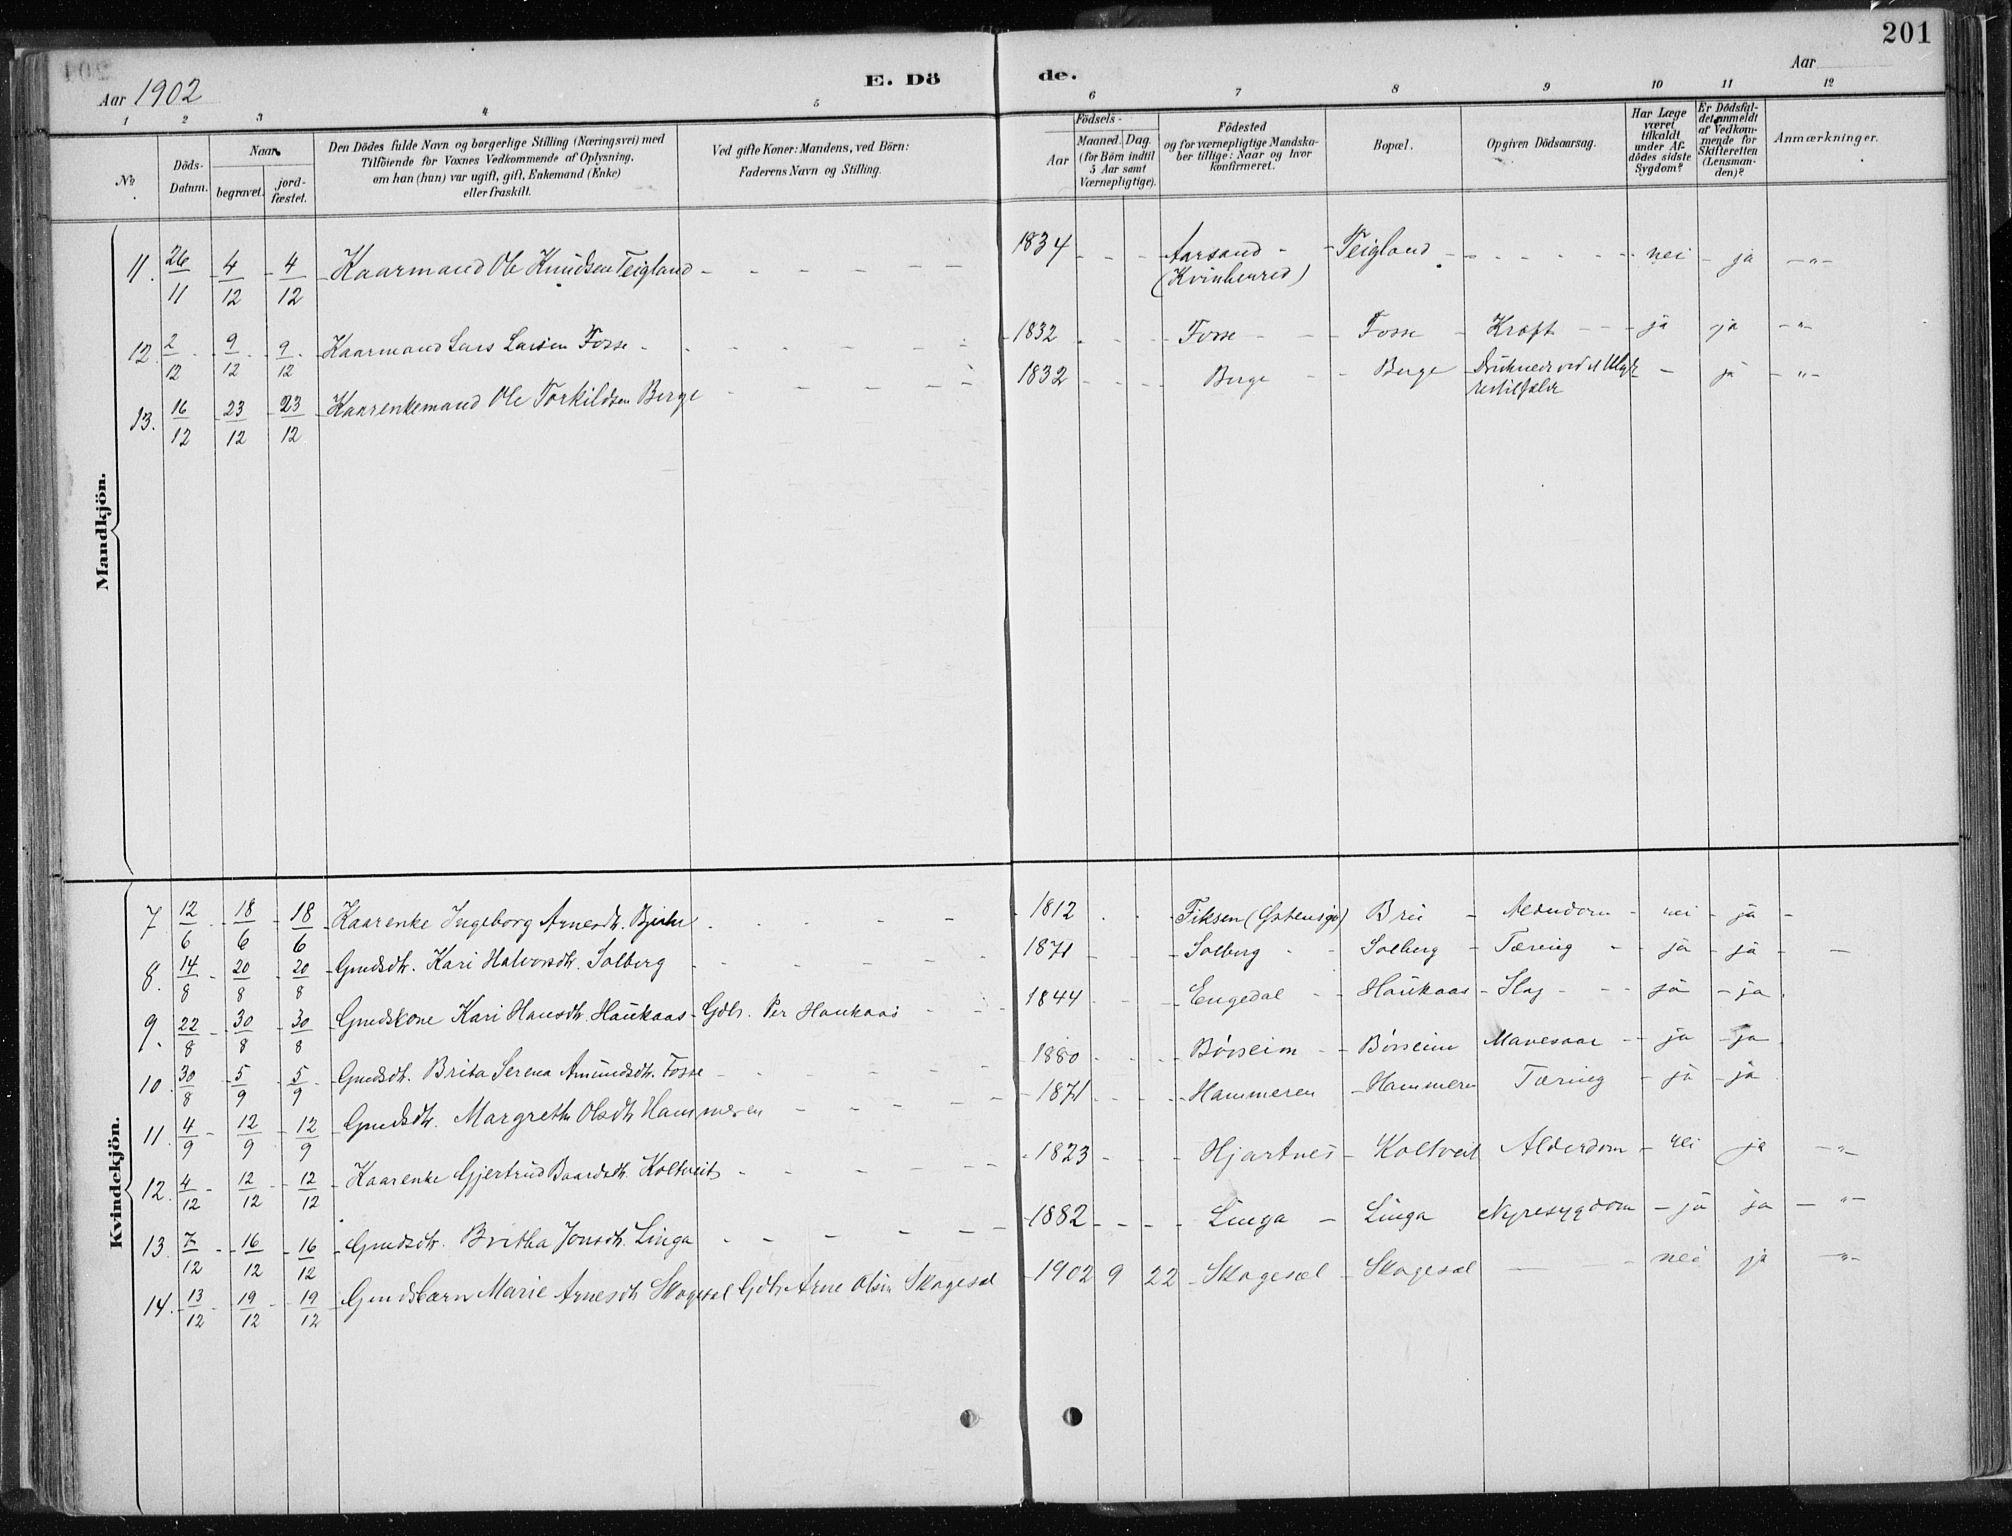 201
Aar 1902
E. Dö
de.
Aar
1 2 3 4 5 6 7 8 9 10 11 12
No.
Döds-
Datum.
Naar
begravet.
jord-
fæstet.
Den Dödes fulde Navn og borgerlige Stilling (Næringsvei) med
Tilföiende for Voxnes Vedkommende af Oplysning,
om han (hun) var ugift, gift, Enkemand (Enke)
eller fraskilt.
Ved gifte Koner: Mandens, ved Börn:
Faderens Navn og Stilling.
Födsels-
Aar
Maaned. Dag.
(for Börn indtil
5 Aar samt
Værnepligtige).
Födested
og for værnepligtige Mandska-
ber tillige: Naar og hvor
konfirmeret.
Bopæl.
Opgiven Dödsaarsag.
Har Læge
været
tilkaldt
under Af-
dödes sidste
Sygdom?
Er Dödsfal-
det anmeldt
af Vedkom-
mende for
Skifteretten
(Lensman-
den)?
Anmærkninger.
Mandkjön.
11. 26/11 - 4/12 - 4/12 - Kaarmand Ole Knudsen Teigland - 1834 - - - Aarsand - - Teigland - - nei - ja - " -
(Kvinherred)
12. 2/12 - 9/12 - 9/12 - Kaarmand Lars Larsen Fosse - 1832 - - - Fosse - - Fosse - Kræft - - ja - ja - " -
13. 16/12 - 23/12 - 23/12 - Kaarenkemand Ole Torkildsen Berge - 1832 - - - Berge - - Berge - Druknede ved et Ulyk- - ja - " -
kestilfælde
Kvindekjön.
7. 12/6 - 18/6 - 18/6 - Kaarenke Ingeborg Arnesdtr. - 1812 - - - Fiksen (Östensjö) Bru - Alderdom - nei - ja -
8. 14/8 - 20/8 - 20/8 - Gmdsdtr. Kari Halvorsdtr. Solberg - 1871 - - - Solberg - - Solberg - Tæring - ja - ja - -
9. 22/8 - 30/8 - 30/8 - Gmdskone Kari Hansdtr. Haukaas - Gdbr. Per Haukaas - 1844 - - - Engedal - - Haukaas - Slag - - ja - ja.
10. 30/8 - 5/9 - 5/9 - Gmdsdtr. Brita Serena Amundsdtr. Fosse - 1880 - - - Børseim - - Børseim Mavesaar - ja - ja
11. 4/9 - 12/9 - 12/9 - Gmdsdtr. Margrethe Olsdtr. Hammeren - 1871 - - - Hammeren - Hammeren Tæring - ja - ja
12. 4/12 - 12/12 - 12/12 - Kaarenke Gjertrud Baardsdtr. Koltveit - 1823 - - - Hjartnes - Koltveit Alderdom - nei ja - " -
13. 7/12 - 16/12 - 16/12 - Gmdsdtr. Britha Jonsdtr. Linga - 1882 - - - Linga - Linga Nyresygdom - ja ja - " -
14. 13/12 - 19/12 - 19/12 - Gmdsbarn Marie Arnesdtr. Skogesæl Gdbr. Arne Olsen Skogesæl - 1902 9 22 - Skogesæl - Skogesæl - - nei ja - " -